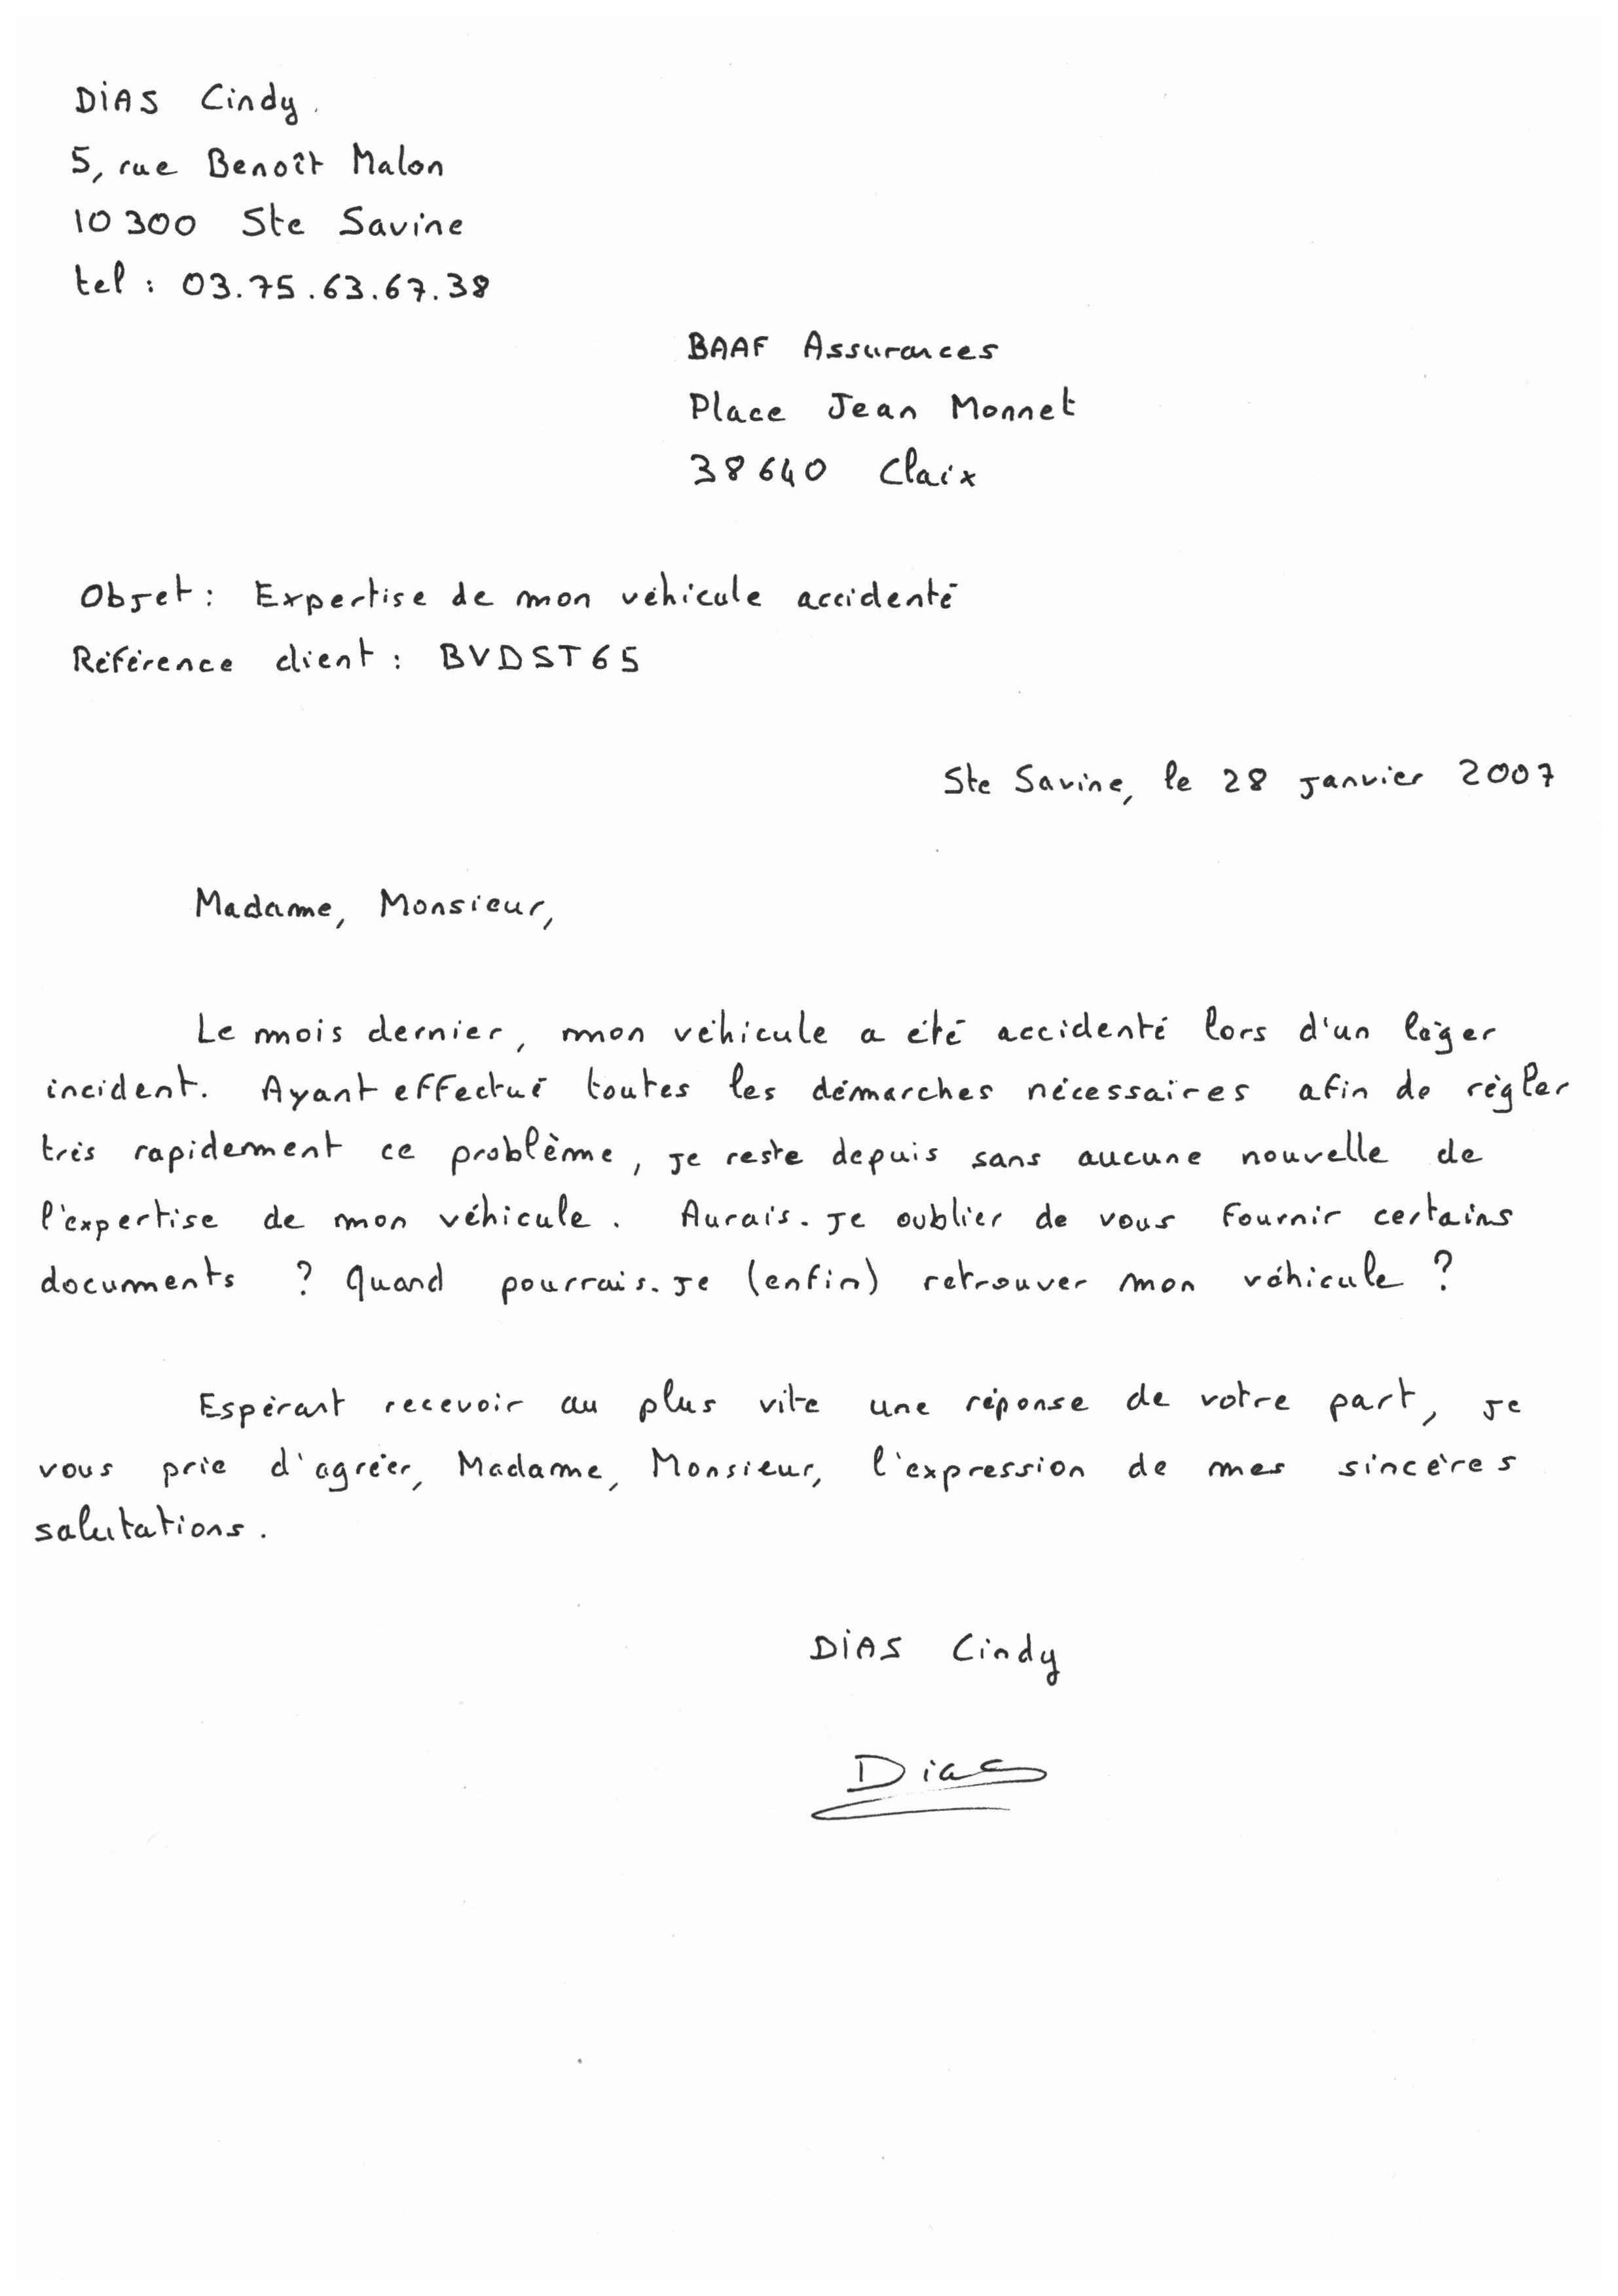 DIAS Cindy.
5, rue Benoît Malon
10 300 Ste Savine
tel : 03.75.63.67.38
BAAF Assurances
Place Jean Monnet
38640 Claix
Objet : Expertise de mon véhicule accidenté
Référence client : BVDST65
Ste Savine, le 28 janvier 2007
Madame, Monsieur,
Le mois dernier, mon véhicule a été accidenté lors d'un léger
incident. Ayant effectué toutes les démarches nécessaires afin de régler
très rapidement ce problème, je reste depuis sans aucune nouvelle de
l'expertise de mon véhicule. Aurais-je oublier de vous fournir certains
documents ? Quand pourrais-je (enfin) retrouver mon véhicule ?
Espérant recevoir au plus vite une réponse de votre part, je
vous prie d'agréer, Madame, Monsieur, l'expression de mes sincères
salutations.
DIAS Cindy
Dias